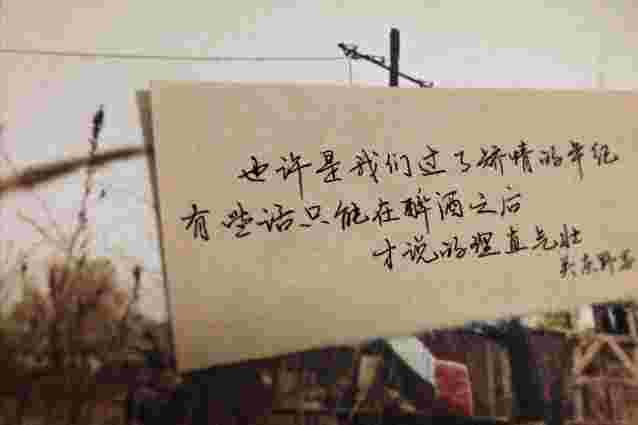 也许是我们过了矫情的年纪
有些话只能在醉酒之后
才说的理直气壮